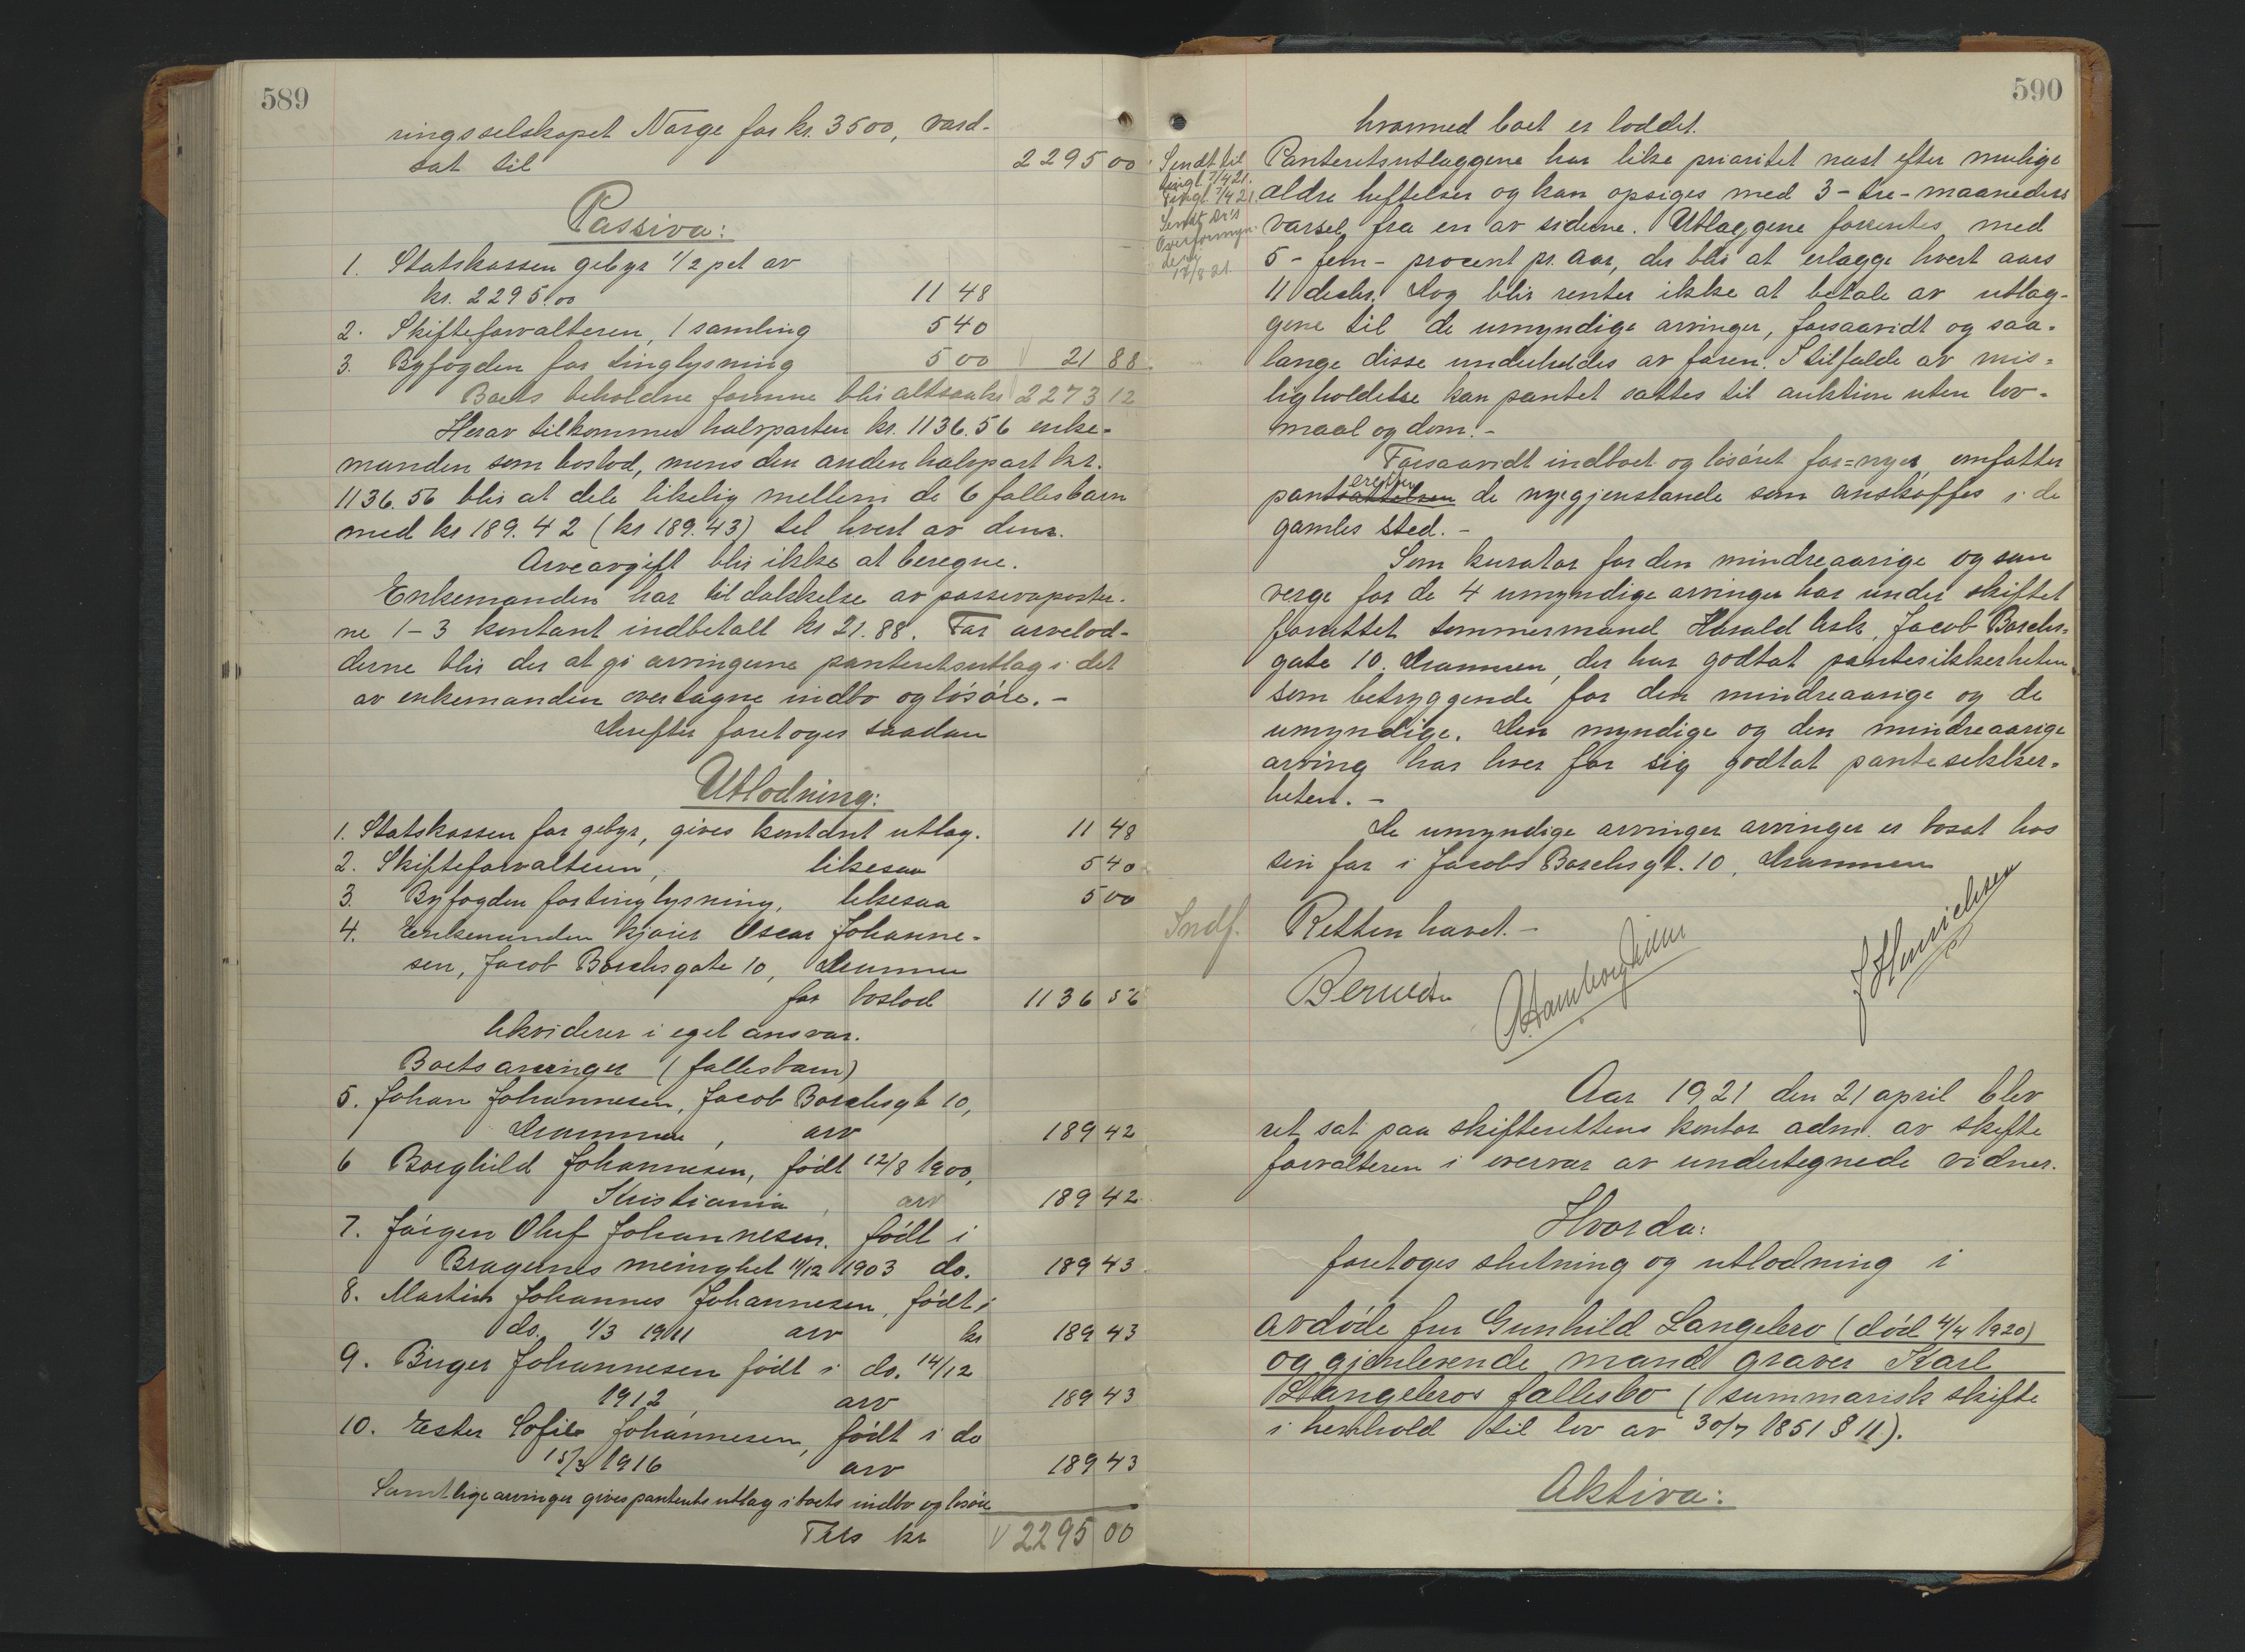 589
ringsselskapet Norge for kr. 3500, værd-
sat til 2295 00
Passiva:
1. Statskassen gebyr 1/2 pct av
kr. 2295.00 11 48
2. Skifteforvalteren, 1 samling 5 40
3. Byfogden for tinglysning 5 00 21 88
Boets beholdne formue blir altsaa kr 2273 12
Herav tilkommer halvparten kr. 1136.56 enke-
manden som boslod, mens den anden halvpart kr.
1136.56 blir at dele likelig mellem de 6 fællesbarn
med kr 189.42 (kr 189.43) til hvert av dem.
Arveavgift blir ikke at beregne.
Enkemanden har til dækkelse av passivaposter-
ne 1-3 kontant indbetalt kr 21.88. For arvelod-
derne blir der at gi arvingerne panteretsutlæg i det
av enkemanden overtagne indbo og løsøre. -
Derefter foretoges saadan
Utlodning:
1. Statskassen for gebyr, gives kontant utlæg. 11 48
2. Skifteforvalteren, likesaa 5 40
3. Byfogden for tinglysning, likesaa 5 00
4. Enkemanden kjører Oscar Johanne-
sen, Jacob Borchsgate 10, Drammen
for boslod 1136 56
likviderer i eget ansvar.
Boets arvinger (fællesbarn)
5. Johan Johannesen, Jacob Borchsgt 10,
Drammen, arv 189 42
6 Borghild Johannesen, født 12/8 1900,
Kristiania, arv 189 42
7. Jørgen Oluf Johannesen, født i
Bragernes menighet 11/12 1903 do. 189 43
8. Martin Johannes Johannesen, født i
do. 1/3 1911 arv kr 189 43
9. Birger Johannesen født i do. 14/12
1912, arv 189 43
10. Ester Sofie Johannesen, født i do
15/3 1916 arv 189 43
Samtlige arvinger gives panterets utlæg i boets indbo og løsøre
Tils kr 2295 00
590
hvormed boet er loddet.
Sendt til
tingl. 7/4 21.
Tingl. 7/4 21.
Sendt
Overformyn-
deri
17/8 21.
Panteretsutlæggene har like prioritet næst efter mulige
ældre heftelser og kan opsiges med 3-tre-maaneders
varsel fra en av siderne. Utlæggene forrentes med
5-fem-procent pr. aar, der blir at erlægge hvert aars
11 decbr. Dog blir renter ikke at betale av utlæg-
gene til de umyndige arvinger, forsaavidt og saa-
længe disse underholdes av faren. I tilfælde av mis-
ligholdelse kan pantet sættes til auktion uten lov-
maal og dom. -
Forsaavidt indboet og løsøret for=nyes, omfatter
pantsættelsen de nye gjenstande som anskaffes i de
gamles sted. -
Som kurator for den mindreaarige og som
verge for de 4 umyndige arvinger har under skiftet
forrettet tømmermand Harald Ask, Jacob Borchs-
gate 10, Drammen, der har godtat pantesikkerheten
som betryggende for den mindreaarige og de
umyndige. Den myndige og den mindreaarige
arving har hver for sig godtat pantesikker-
heten. -
De umyndige arvinger arvinger er bosat hos
sin far i Jacobs Borchsgt. 10, Drammen
Indf.
Retten hævet. -
J Henrichsen
Aar 1921 den 21 april blev
ret sat paa skifterettens kontor adm. av skifte
forvalteren i overvær av undertegnede vidner.
Hvorda:
foretoges slutning og utlodning i
avdøde fru Gunhild Langebro (død 4/4 1920)
og gjenlevende mand graver Karl
Langebros fællesbo (summarisk skifte
i henhold til lov av 30/7 1851 § 11).
Aktiva: